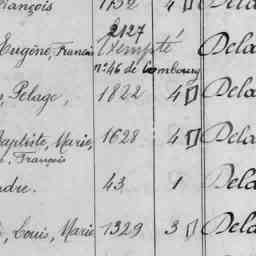 François 1752 4 Dela
2127
Eugène, Francois Exempté Dela
n.° 46 de Combourg
, Pelage, 1822 4 Dela
Baptiste, Marie, 1628 4 Dela
François
dre. 43 1 Dela
, Louis, Marie 1329 3 Dela